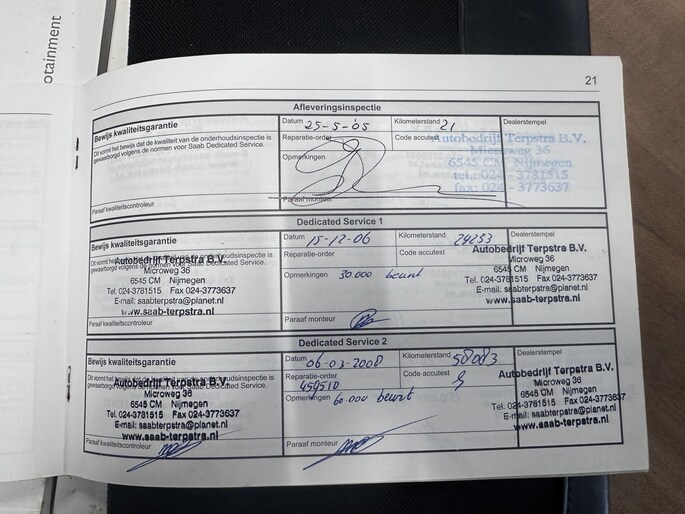 otainment
21
Afleveringsinspectie
Bewijs kwaliteitsgarantie
Dit vormt het bewijs dat de kwaliteit van de onderhoudsinspectie is
gewaarborgd volgens de normen voor Saab Dedicated Service.
Paraaf kwaliteitscontroleur
Datum 25-5-05
Reparatie-order
Opmerkingen
Paraaf monteur
Kilometerstand 21
Code accutest
Dealerstempel
Autobedrijf Terpstra B.V.
Microweg 36
6545 CM Nijmegen
tel.: 024 - 3781515
fax: 024 - 3773637
Dedicated Service 1
Bewijs kwaliteitsgarantie
gewaarborgd volgens de normen voor Saab Dedicated Service.
Autobedrijf Terpstra B.V.
Microweg 36
6545 CM Nijmegen
Tel. 024-3781515 Fax 024-3773637
E-mail: saabterpstra@planet.nl
www.saab-terpstra.nl
Paraaf kwaliteitscontroleur
Datum 15-12-06
Reparatie-order
Opmerkingen 30.000 beurt
Paraaf monteur
Kilometerstand 29253
Code accutest
Dealerstempel
Autobedrijf Terpstra B.V.
Microweg 36
6545 CM Nijmegen
Tel. 024-3781515 Fax 024-3773637
E-mail: saabterpstra@planet.nl
www.saab-terpstra.nl
Dedicated Service 2
Bewijs kwaliteitsgarantie
Autobedrijf Terpstra B.V.
Microweg 36
6545 CM Nijmegen
Tel. 024-3781515 Fax 024-3773637
E-mail: saabterpstra@planet.nl
www.saab-terpstra.nl
Paraaf kwaliteitscontroleur
Datum 06-03-2008
Reparatie-order
459510
Opmerkingen 60.000 beurt
Paraaf monteur
Kilometerstand 58083
Code accutest
Dealerstempel
Autobedrijf Terpstra B.V.
Microweg 36
6545 CM Nijmegen
Tel. 024-3781515 Fax 024-3773637
E-mail: saabterpstra@planet.nl
www.saab-terpstra.nl